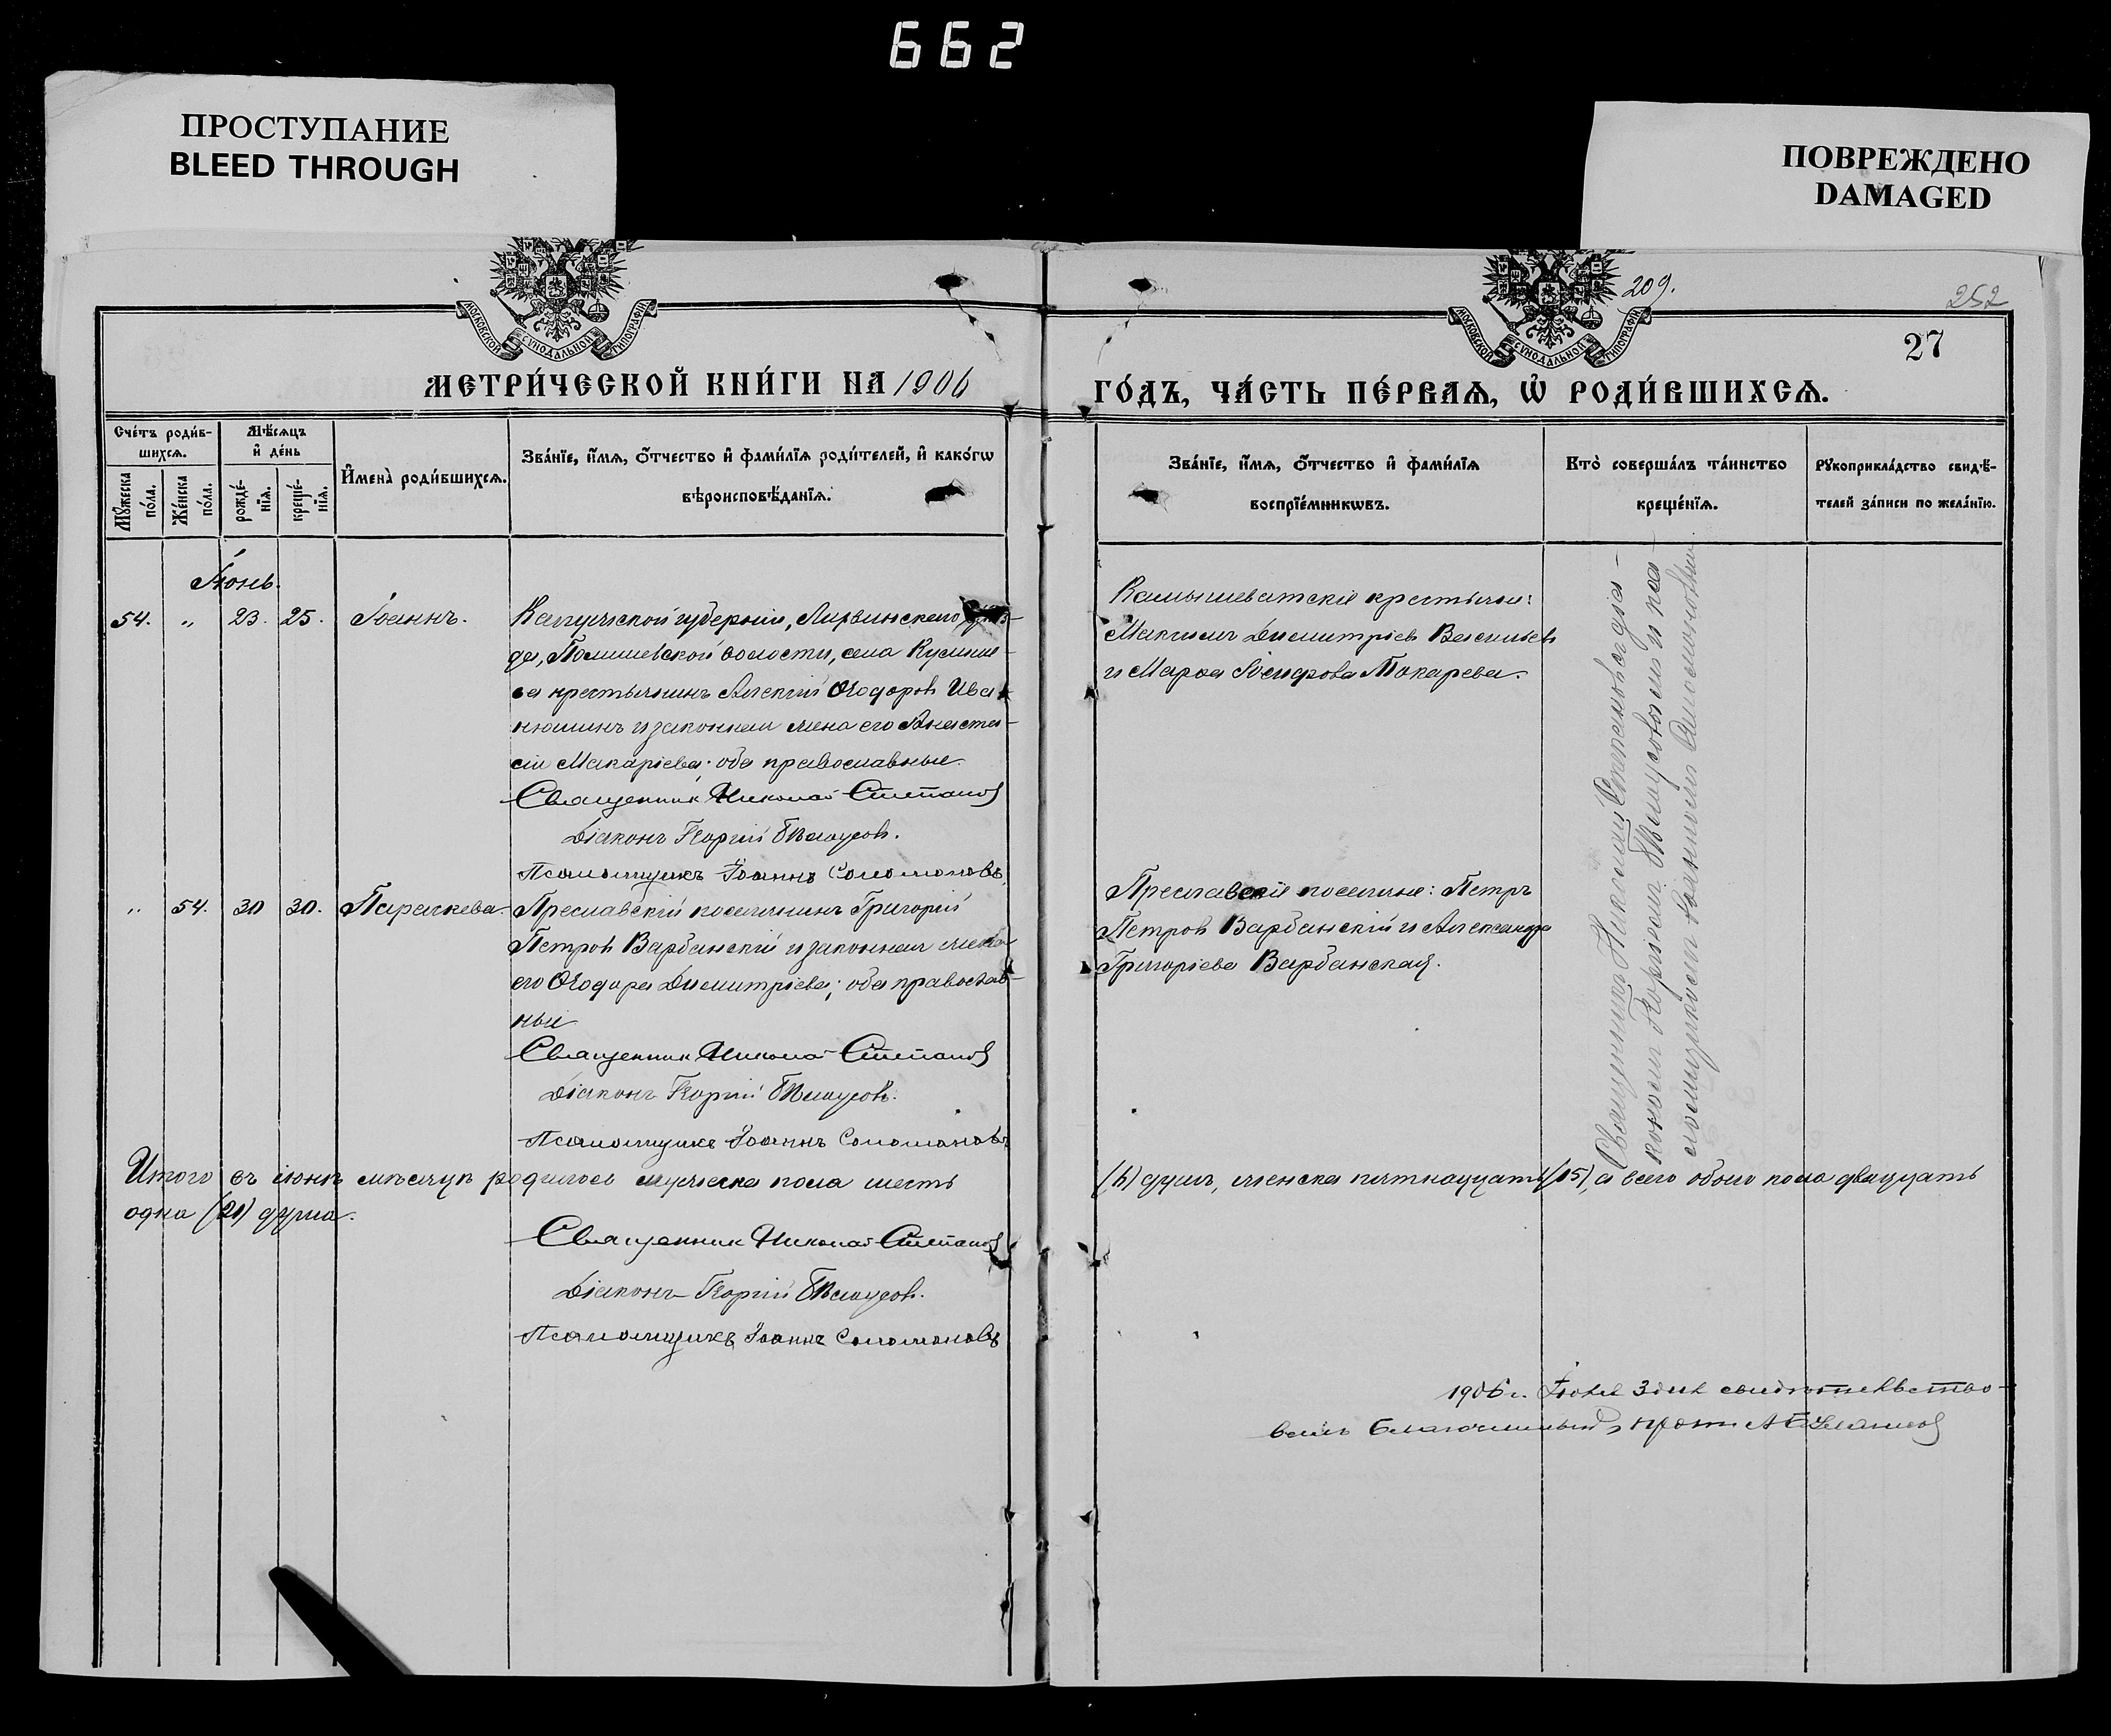 662
ПРОСТУПАНИЕ
BLEED THROUGH
ПОВРЕЖДЕНО
DAMAGED
МОСКОВСКОЙ СѴНОДАЛЬНОЙ ТИПОГРАФІИ
МОСКОВСКОЙ СѴНОДАЛЬНОЙ ТИПОГРАФІИ
209.
252
27
МЕТРИ́ЧЕСКОЙ КНИ́ГИ НА 1906
ГО́ДЪ, ЧА́СТЬ ПЕ́РВАѦ, Ѡ҆ РОДИ́ВШИХСѦ.
Сче́тъ роди́в-
шихсѧ.
Мѣ́сѧцъ
и҆ де́нь
Мꙋ́жеска
по́ла.
Же́нска
по́ла.
рожде́-
нїѧ.
креще́-
нїѧ.
И҆мена̀ роди́вшихсѧ.
Зва́нїе, и҆́мѧ, ѻ҆́тчество и҆ фами́лїѧ роди́телей, и҆ како́гѡ
вѣроисповѣ́данїѧ.
Зва́нїе, и҆́мѧ, ѻ҆́тчество и҆ фами́лїѧ
воспрїе́мникѡвъ.
Кто̀ соверша́лъ та́инство
креще́нїѧ.
Рꙋкоприкла́дство свидѣ́-
телей за́писи по жела́нїю.
Іюнь.
54. „ 23. 25. Іоаннъ.
Калужской губерніи, Лихвинскаго уѣз-
да, волости, села
крестьянинъ Алексій Ѳеодоровъ Ива-
нюшинъ и законная жена его Анаста-
сія Макаріева; оба православные.
Священникъ Николай Степановъ
Діаконъ Георгій Бѣлоусовъ.
Псаломщикъ Іоаннъ Соломоновъ
Камышеватскіе крестьяне:
Максимъ Димитріев Васильевъ
и Марѳа Токарева.
Священникъ Николай Степановъ съ діа-
кономъ Георгіемъ Бѣлоусовымъ и пса-
ломщикомъ Іоанномъ Соломоновымъ.
„ 54. 30 30. Параскева.
Преславскій поселянинъ Григорій
Петровъ Варбанскій и законная жена
его Ѳеодора Димитріева; оба православ-
ные
Священникъ Николай Степановъ
Діаконъ Георгій Бѣлоусовъ.
Псаломщикъ Іоаннъ Соломоновъ
Преславскіе поселяне: Петръ
Петровъ Варбанскій и Александра
Григоріева Варбанская.
Итого въ іюнѣ мѣсяцѣ родилось мужеска пола шесть (6) душъ, женска пятнадцать (15), а всего обоего пола двадцать
одна (21) душа.
Священникъ Николай Степановъ
Діаконъ Георгій Бѣлоусовъ.
Псаломщикъ Іоаннъ Соломоновъ
1906 г. 3 дня свидѣтельство-
валъ Благочинный, прот.